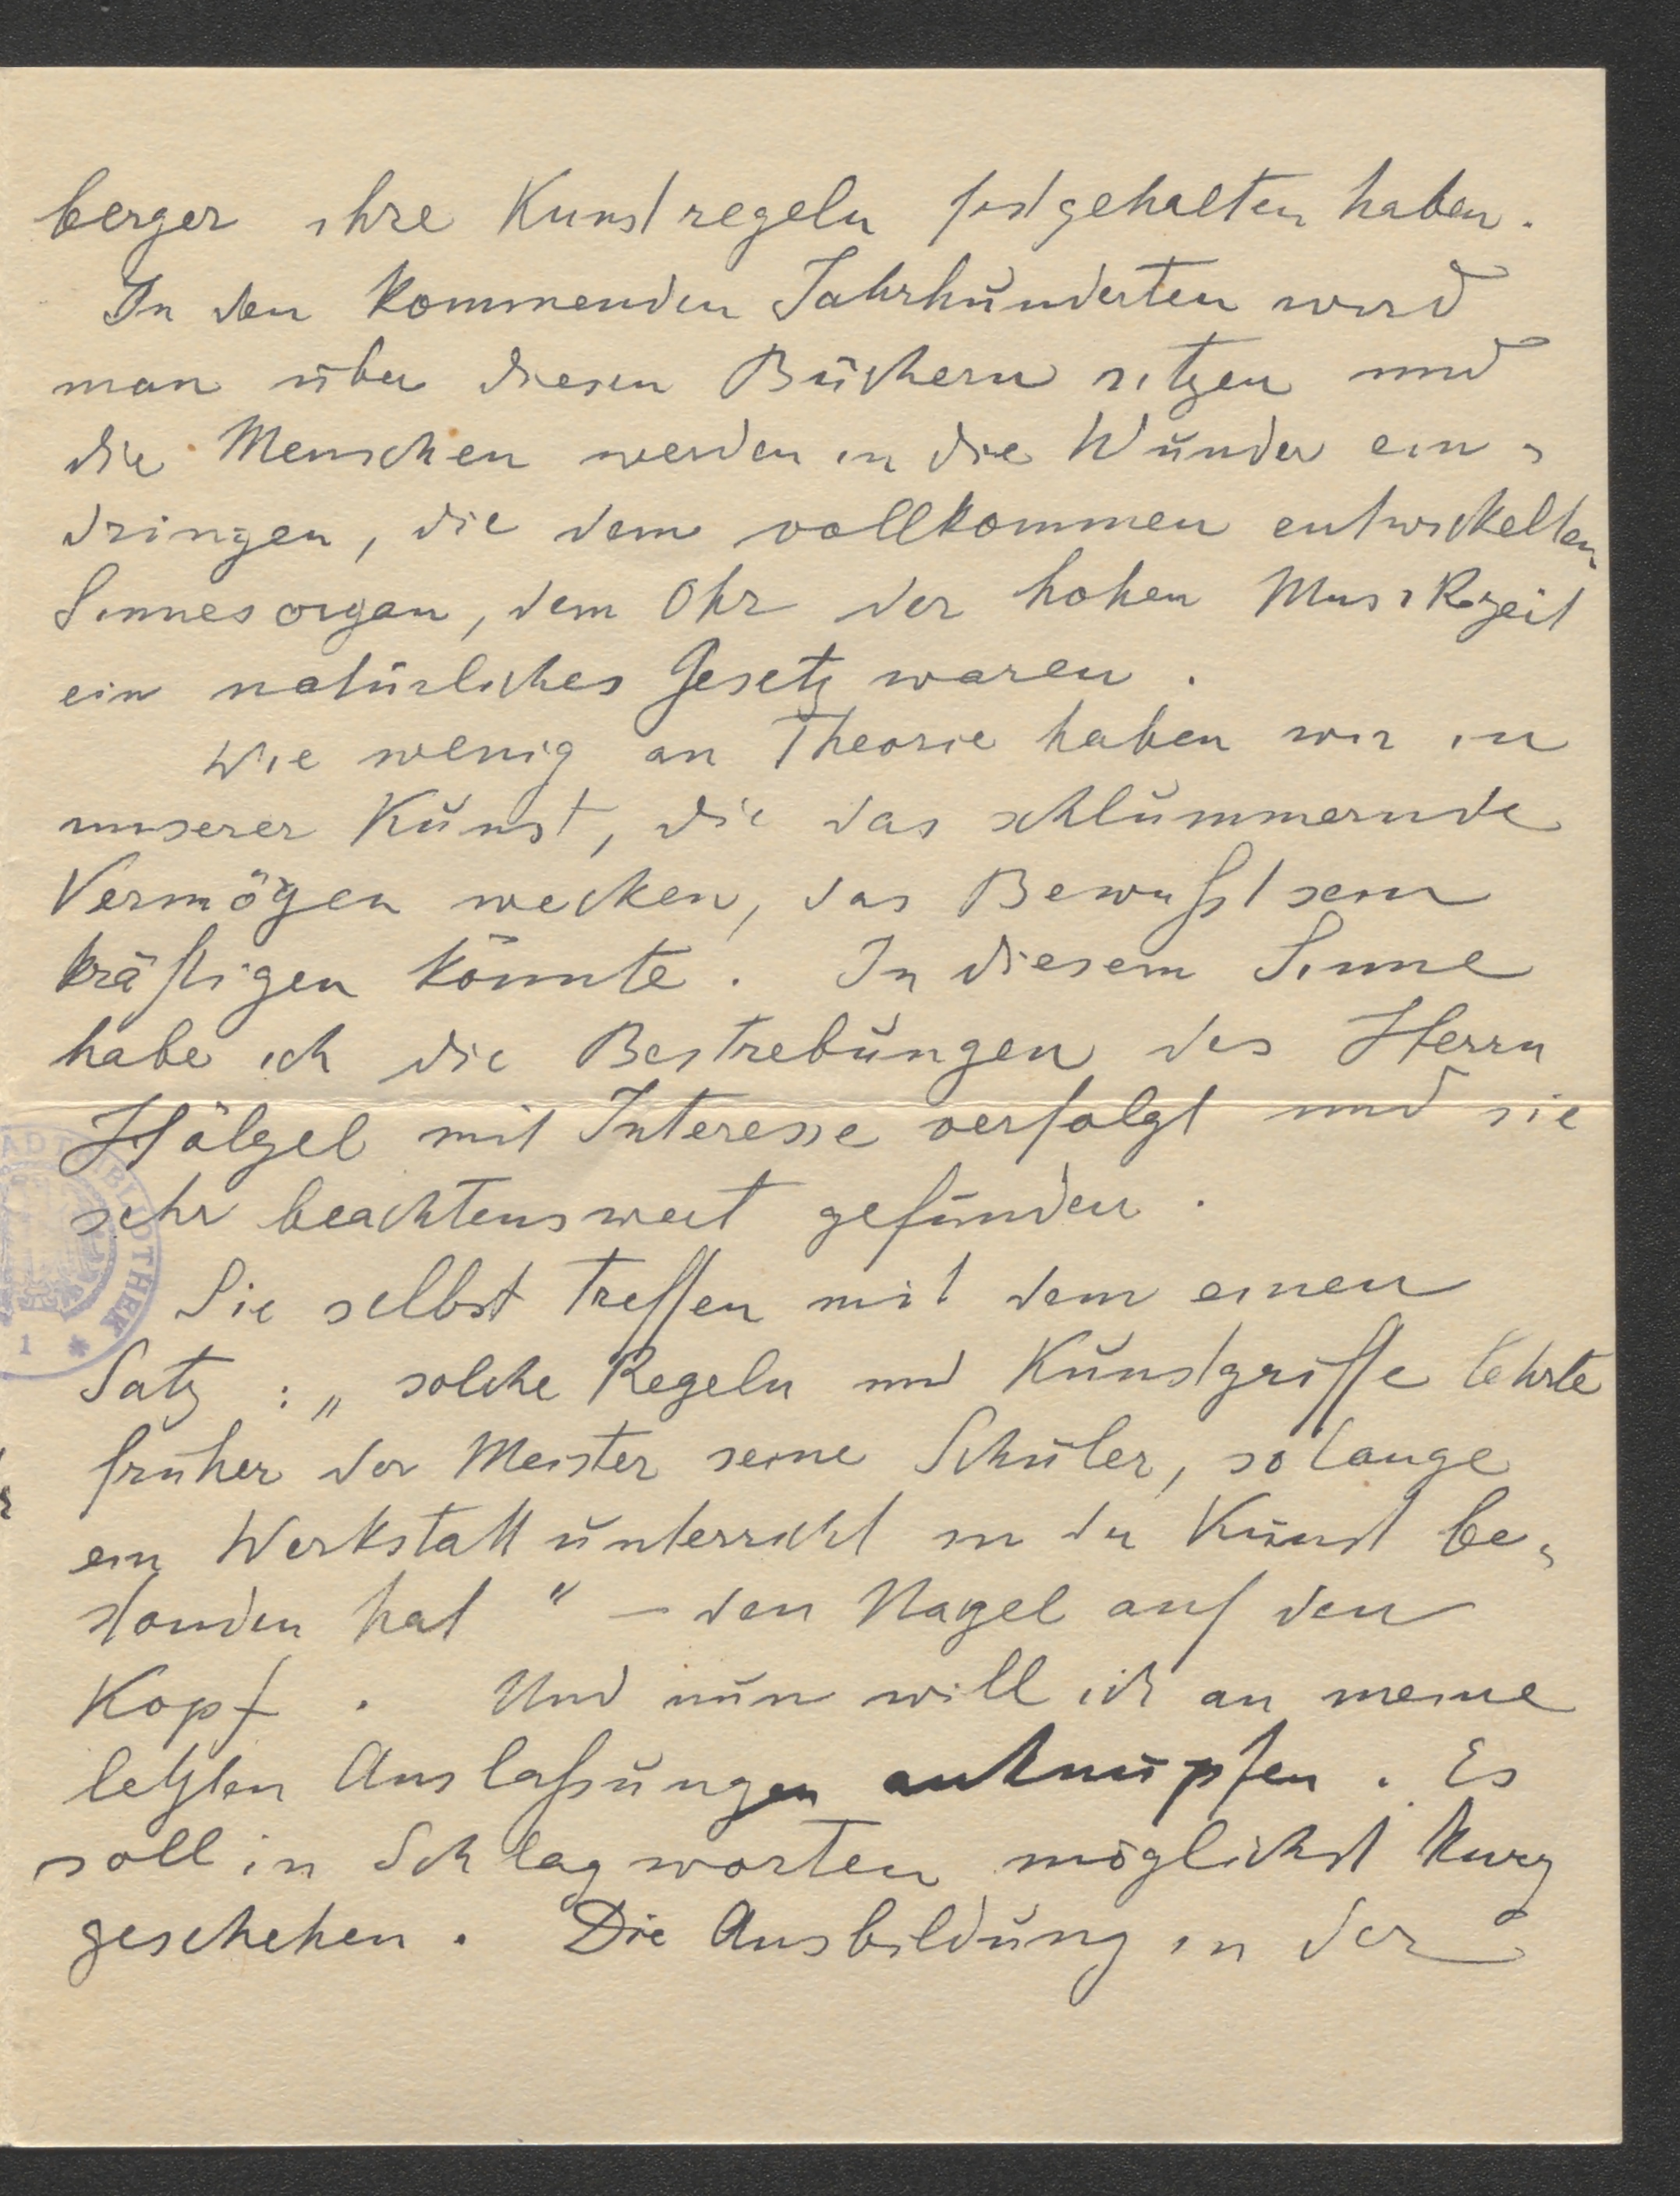 berger ihre Kunstregeln festgehalten haben.
In den kommenden Jahrhunderten wird
man über diesen Büchern sitzen und
die Menschen werden in die Wunder ein-
dringen, die dem vollkommen entwickelten
Sinnesorgan, dem Ohr der hohen Musikzeit
ein natürliches Gesetz waren.
Wie wenig an Theorie haben wir in
unserer Kunst, die das schlummernde
Vermögen wecken, das Bewußtsein
kräftigen könnte. In diesem Sinne
habe ich die Bestrebungen des Herrn
Hölzel mit Interesse verfolgt und sie
sehr beachtenswert gefunden.
Sie selbst treffen mit dem einen
Satz : „ solche Regeln und Kunstgriffe lehrte
früher der Meister seine Schüler, solange
ein Werkstattunterricht in der Kunst be-
standen hat " – den Nagel auf den
Kopf . Und nun will ich an meine
letzten Auslaßungen anknüpfen . Es
soll in Schlagworten möglichst kurz
geschehen . Die Ausbildung in der
BIBLIOTHEK
1 *